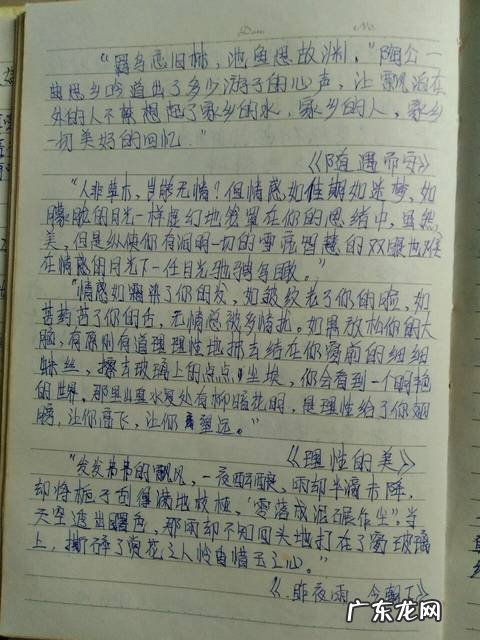 Date No.
“羁鸟恋旧林，池鱼思故渊，”陶公一
曲思乡吟道出了多少游子的心声，让飘泊在
外的人不禁想起了家乡的水，家乡的人，家乡
一切美好的回忆。”
《随遇而安》
“人非草木，岂能无情？但情感如佳期如造梦，如
朦胧的月光一样虚幻地笼罩在你的思绪中，虽然
美，但是纵使你有洞明一切的 智慧的双眼也难
在情感的月光下一任目光驰骋与 。”
“情感如 了你的发，如皱纹老了你的脸，如
苦药苦了你的舌，无情总被多情扰。如果放松你的大
脑，有原则有道理理性地抹去结在你窗前的细细
蛛丝，擦去玻璃上的点点尘埃，你会看到一个明艳
的世界。那里山重水复处有柳暗花明，是理性给了你翅
膀，让你高飞，让你望远。”
《理性的美》
“ 的飘风，一夜 ，雨却半滴未降，
却将栀子 得满地 ，“零落成泥碾作尘”，当
天空透出曙色，那雨却不知回头地打在了窗玻璃
上，撕碎了 花之人怜 惜玉之心。”
《昨夜雨，今朝 》
广东龙网